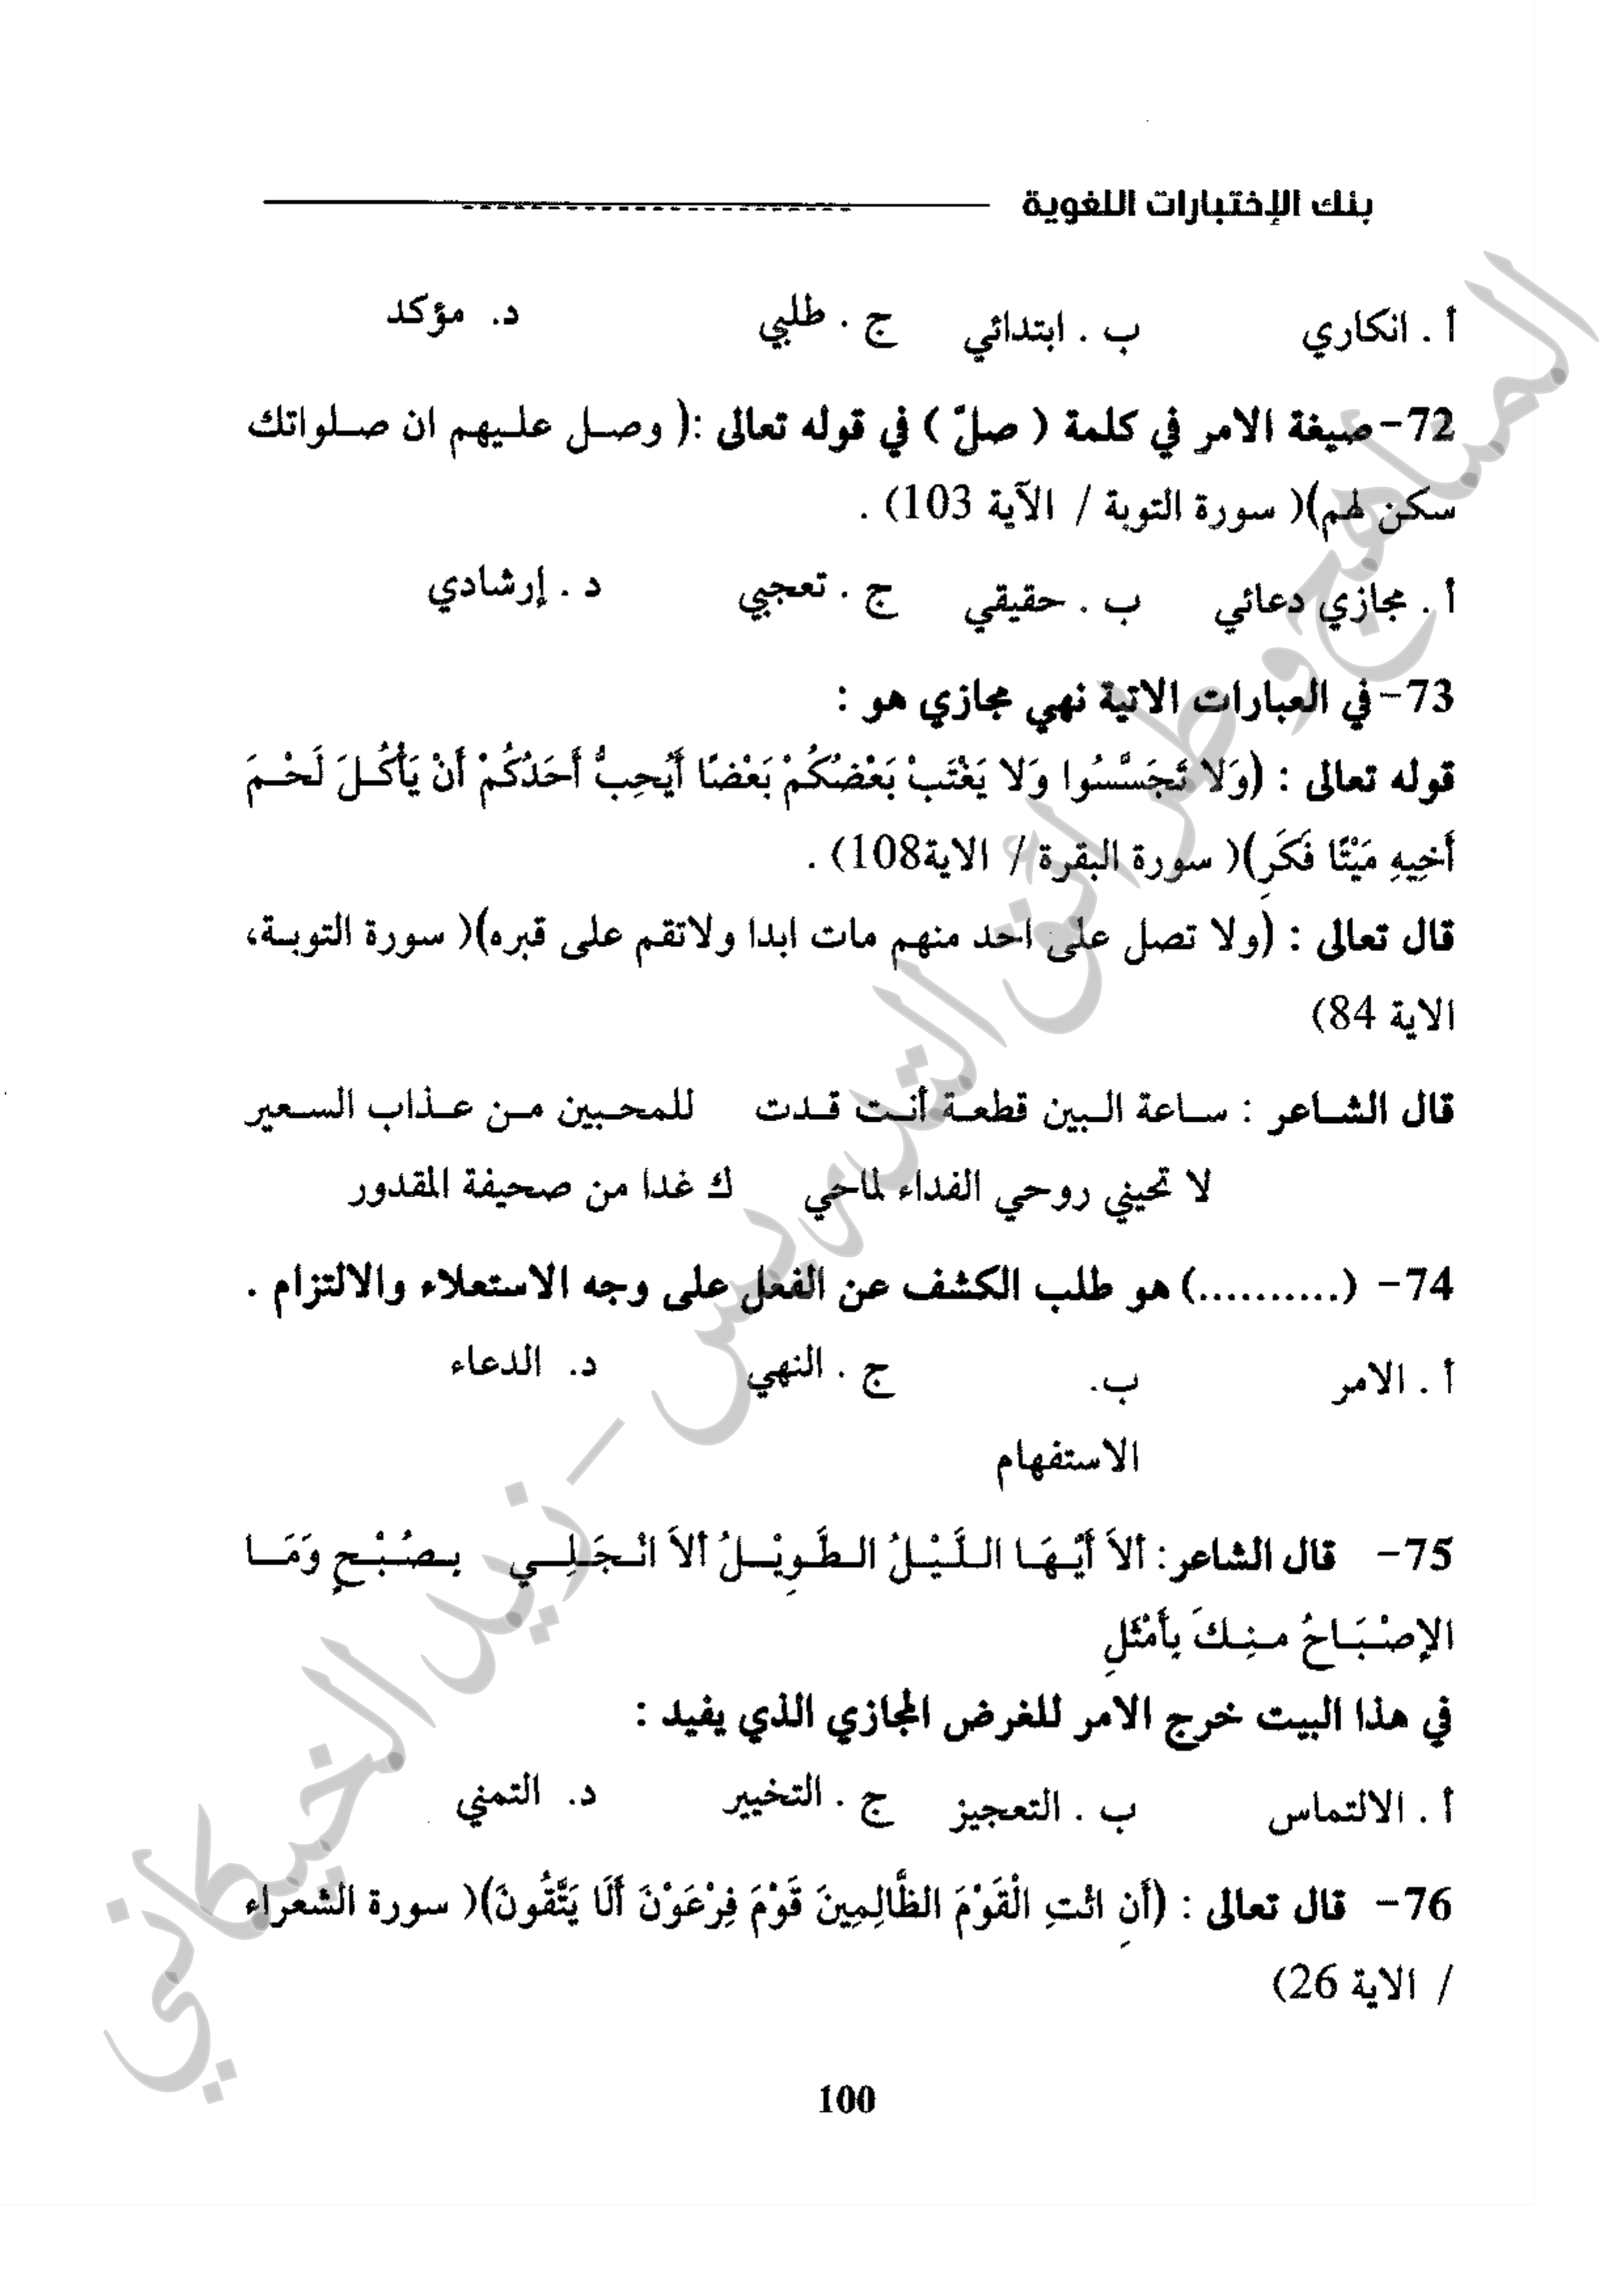 بنك الإختبارات اللغوية
أ . انكاري ب . ابتدائي ج . طلبي د. مؤكد
72- صيغة الامر في كلمة ( صلّ ) في قوله تعالى :( وصل عليهم ان صلواتك
سكن لهم)( سورة التوبة / الآية 103) .
أ . مجازي دعائي ب . حقيقي ج . تعجبي د . إرشادي
73- في العبارات الاتية نهي مجازي هو :
قوله تعالى : (وَلا تَجَسَّسُوا وَلا يَغْتَبْ بَعْضُكُمْ بَعْضًا أَيُحِبُّ أَحَدُكُمْ أَنْ يَأْكُلَ لَحْمَ
أَخِيهِ مَيْتًا فَكَرِ)( سورة البقرة / الاية108) .
قال تعالى : (ولا تصل على احد منهم مات ابدا ولاتقم على قبره)( سورة التوبة،
الاية 84)
قال الشاعر : ساعة البين قطعة أنت قدت للمحبين من عذاب السعير
لا تحيني روحي الفداء لماحي ك غدا من صحيفة المقدور
74- (..........) هو طلب الكشف عن الفعل على وجه الاستعلاء والالتزام .
أ . الامر ب. ج . النهي د. الدعاء
الاستفهام
75- قال الشاعر: ألاَ أَيُّهَا اللَّيْلُ الطَّوِيْلُ ألاَ انْجَلِي بِصُبْحٍ وَمَا
الإصْبَاحُ مِنكَ بِأَمْثَلِ
في هذا البيت خرج الامر للغرض المجازي الذي يفيد :
أ . الالتماس ب . التعجيز ج . التخيير د. التمني
76- قال تعالى : (أَنِ ائْتِ الْقَوْمَ الظَّالِمِينَ قَوْمَ فِرْعَوْنَ أَلَا يَتَّقُونَ)( سورة الشعراء
/ الاية 26)
100
المناهج وطرائق التدريس - زيد الخيكاني